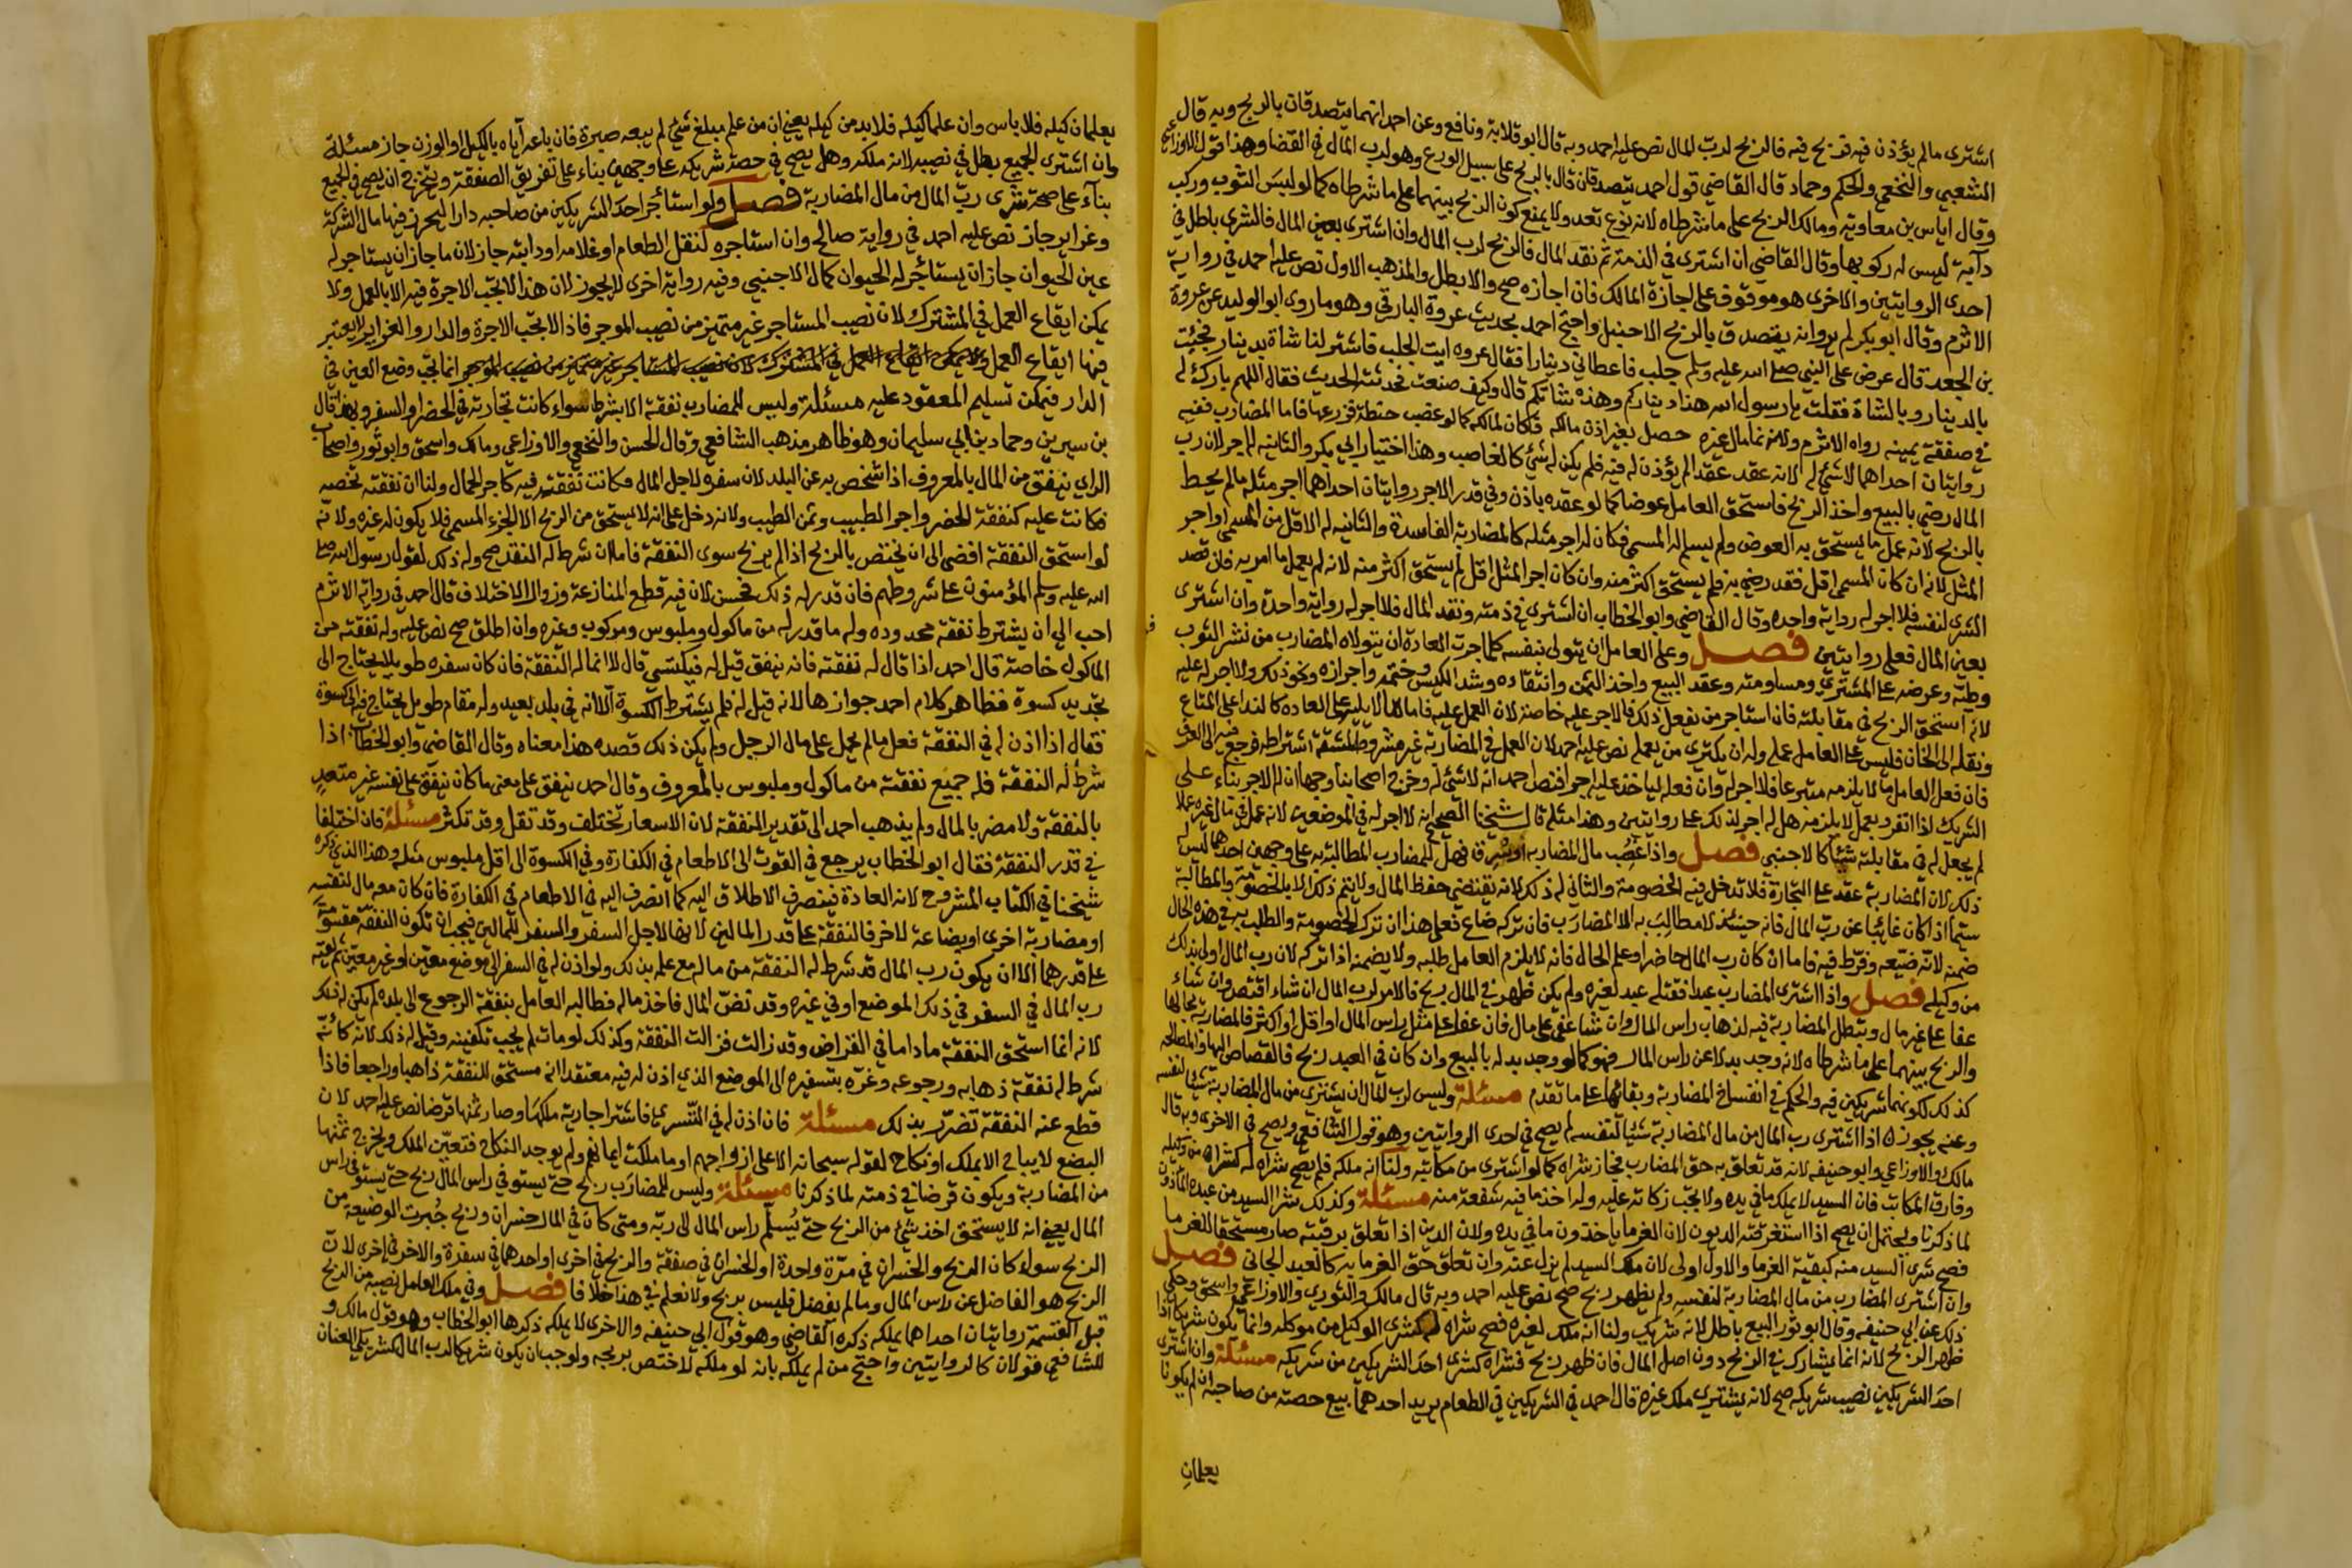 اشترى مالم يؤذن فيه فربح فيه فالربح لرب المال نص عليه احمد وبه قال ابو قلابة ونافع وعن احمد انهما يتصدقان بالربح وبه قال
الشعبي والنخعي والحكم وحماد قال القاضي قول احمد يتصدقان قال بالربح على سبيل الورع وهو لرب المال في القضا وهذا قول الاوزاعي
وقال اياس بن معاوية ومالك الربح على ما شرطاه لانه نوع تعد ولا يمنع كون الربح بينهما على ما شرطاه كما لو لبس الثوب وركب
دآبة ليس له ركوبها وقال القاضي ان اشترى في الذمة ثم نقد المال فالربح لرب المال وان اشترى بعين المال فالشرى باطل في
احدى الروايتين والاخرى هو موقوف على اجازة المالك فان اجازه صح والا بطل والمذهب الاول نص عليه احمد في رواية
الاثرم وقال ابو بكر لم يرو انه يتصدق بالربح الا حنبل واحتج احمد بحديث عروة البارقي وهو ما روى ابو الوليد عن عروة
بن الجعد قال عرض على النبي صلى الله عليه وسلم جلب فاعطاني دينارا فقال عروه ايت الجلب فاشتر لنا شاة بدينار فجئت
بالدينار وبالشاة فقلت يا رسول الله هذا ديناركم وهذه شاتكم قال وكيف صنعت فحدثته الحديث فقال اللهم بارك له
في صفقة يمينه رواه الاثرم ولانه نما مال غيره حصل بغير اذن مالكه فكان لمالكه كما لو غصب حنطة فزرعها فاما المضارب ففيه
روايتان احداهما لا شيء له لانه عقد عقدا لم يؤذن له فيه فلم يكن له شي كالغاصب وهذا اختيار ابي بكر والثانيه له اجر لان رب
المال رضي بالبيع واخذ الربح فاستحق العامل عوضا كما لو عقده باذن وفي قدر الاجر روايتان احداهما اجر مثله مالم يحيط
بالربح لانه عمل ما يستحق به العوض ولم يسلم له المسمى فكان له اجر مثله كالمضاربة الفاسدة والثانيه له الاقل من المسمى او اجر
المثل لانه ان كان المسمى اقل فقد رضي به فلم يستحق اكثر منه وان كان اجر المثل اقل لم يستحق اكثر منه لانه لم يعمل ما امر به فان قصد
الشرى لنفسه فلا اجر له رواية واحده وقال القاضي وابو الخطاب ان اشترى في ذمته ونقد المال فلا اجر له رواية واحدة وان اشترى
بعين المال فعلى روايتين فصل وعلى العامل ان يتولى بنفسه كلما جرت العادة ان يتولاه المضارب من نشر الثوب
وطيّه وعرضه على المشتري ومساومته وعقد البيع واخذ الثمن وانتقاده وشد الكيس وختمه واحرازه ونحو ذلك ولا اجر له عليه
لانه استحق الربح في مقابلته فان استاجر من يفعل ذلك فالاجر عليه خاصة لان العمل عليه فاما ما لا يليه في العاده كالندا على المتاع
ونقله الى الخان فليس على العامل عمله وله ان يكتري من يعمله نص عليه احمد لان العمل في المضاربة غير مشروط لمشقة اشتراطه فرجع فيه الى العرف
فان فعل العامل ما لا يلزمه متبرعا فلا اجر له وان فعله لياخذ عليه اجرا فنص احمد انه لا شيء له وخرج اصحابنا وجها ان له الاجر بناء على
الشريك اذا انفرد بعمل لا يلزمه هل له اجر لذلك على روايتين وهذا مثله قال شيخنا الصحيح انه لا اجر له في الموضعين لانه عمل في مال غيره عملا
لم يجعل له في مقابلته شيئا كالاجنبي فصل واذا غصب مال المضاربه او سرق فهل للمضارب المطالبة به على وجهين احدهما ليس له
ذلك لان المضاربة عقد على التجارة فلا تدخل فيه الخصومة والثاني له ذلك لانه يقتضي حفظ المال ولا يتم ذلك الا بالخصومة والمطالبة
سيما اذا كان غائبا عن رب المال فانه حينئذ لا مطالب به الا المضارب فان تركه ضاع فعلى هذا ان ترك الخصومة والطلب به في هذه الحال
ضمنه لانه ضيعه وفرط فيه فاما ان كان رب المال حاضرا وعلم الحال فانه لا يلزم العامل طلبه ولا يضمنه اذا تركه لان رب المال اولى بذلك
من وكيله فصل واذا اشترى المضارب عبدا فقتله عبد لغيره ولم يكن ظهر في المال ربح فالامر لرب المال ان شاء اقتص وان شاء
عفا على غير مال وتبطل المضاربة فيه لذهاب راس المال وان شا عفى على مال فان عفا على مثل راس المال او اقل او اكثر فالمضاربة بحالها
والربح بينهما على ما شرطاه لانه وجد بدلا عن راس المال فهو كما لو وجد بدله بالبيع وان كان في العبد ربح فالقصاص اليهما والمصالحه
كذلك لكونهما شريكين فيه والحكم في انفساخ المضاربة وبقائها على ما تقدم مسئلة وليس لرب المال ان يشتري من مال المضاربة شيئا لنفسه
وعنه يجوز اذا اشترى رب المال من مال المضاربة شيئا لنفسه لم يصح في احدى الروايتين وهو قول الشافعي ويصح في الاخرى وبه قال
مالك والاوزاعي وابو حنيفه لانه قد تعلق به حق المضارب فجاز شراه كما لو اشترى من مكاتبه ولنا انه ملكه فلم يصح شراه له كشراه من وكيله
وفارق المكاتب فان السيد لا يملك ما في يده ولا تجب زكاته عليه وله اخذ ما فيه شفعة منه مسئلة وكذلك شرا السيد من عبده المأذون
لما ذكرنا ويحتمل ان يصح اذا استغرقته الديون لان الغرما ياخذون ما في يده ولان الدين اذا تعلق برقبته صار مستحقا للغرما
فصح شرى السيد منه كبقية الغرما والاول اولى لان ملك السيد لم يزل عنه وان تعلق حق الغرما به كالعبد الجاني فصل
وان اشترى المضارب من مال المضاربة لنفسه ولم يظهر ربح صح نص عليه احمد وبه قال مالك والثوري والاوزاعي واسحق وحكي
ذلك عن ابي حنيفه وقال ابو ثور البيع باطل لانه شريك ولنا انه ملك لغيره فصح شراه له كشرى الوكيل من موكله وانما يكون شريكا اذا
ظهر الربح لانه انما يشارك في الربح دون اصل المال فان ظهر ربح فشراه كشرى احد الشريكين من شريكه مسئلة وان اشترى
احد الشريكين نصيب شريكه صح لانه يشتري ملك غيره قال احمد في الشريكين في الطعام يريد احدهما بيع حصته من صاحبه ان لم يكونا
يعلمان
يعلمان كيله فلا باس وان علما كيله فلا بد من كيله يعني ان من علم مبلغ شيء لم يبعه صبرة فان باعه آياه بالكيل او الوزن جاز مسئلة
وان اشترى الجميع بطل في نصيبه لانه ملكه وهل يصح في حصة شريكه على وجهين بناء على تفريق الصفقة ويتخرج ان يصح في الجميع
بنآء على صحة شرى رب المال من مال المضاربة فصل ولو استأجر احد الشريكين من صاحبه دارا ليحرز فيها مال الشركة
وغراير جاز نص عليه احمد في رواية صالح وان استاجره لنقل الطعام او غلامه او دابته جاز لان ما جاز ان يستاجر له
عين الحيوان جاز ان يستأجر له الحيوان كمال الاجنبي وفيه رواية اخرى لا يجوز لان هذا لا تجب الاجرة فيه الا بالعمل ولا
يمكن ايقاع العمل في المشترك لان نصيب المستاجر غير متميز من نصيب الموجر فاذا لا تجب الاجرة والدار والغراير لا يعتبر
فيها ايقاع العمل ولا يمكن ايقاع العمل في المشترك لان نصيب المستاجر غير متميز من نصيب الموجر انما تجب وضع العين في
الدار فيمكن تسليم المعقود عليه مسئلة وليس للمضارب نفقة الا بشرط سواء كانت تجارته في الحضر او السفر وبهذا قال
بن سيرين وحماد بن ابي سليمان وهو ظاهر مذهب الشافعي وقال الحسن والنخعي والاوزاعي ومالك واسحق وابو ثور واصحاب
الراي ينفق من المال بالمعروف اذا شخص به عن البلد لان سفره لاجل المال فكانت نفقته فيه كاجر الحمال ولنا ان نفقته تخصه
فكانت عليه كنفقة الحضر واجر الطبيب وثمن الطيب ولانه دخل على انه لا يستحق من الربح الا الجزء المسمى فلا يكون له غيره ولانه
لو استحق النفقة افضى الى ان يختص بالربح اذا لم يربح سوى النفقة فاما ان شرط له النفقه صح وله ذلك لقول رسول الله صلى
الله عليه وسلم المؤمنون على شروطهم فان قدر له ذلك فحسن لان فيه قطع المنازعة وزوال الاختلاف قال احمد في رواية الاثرم
احب الي ان يشترط نفقة محدوده وله ما قدر له من ماكول وملبوس ومركوب وغيره وان اطلق صح نص عليه وله نفقته من
الماكول خاصة قال احمد اذا قال له نفقته فانه ينفق قيل له فيكتسي قال لا انما له النفقة فان كان سفره طويلا يحتاج الى
تجديد كسوة فظاهر كلام احمد جوازها لانه قيل له فلم يشترط الكسوة الا انه في بلد بعيد وله مقام طويل يحتاج فيه الى كسوة
فقال اذا اذن له في النفقة فعل مالم يحمل على مال الرجل ولم يكن ذلك قصده هذا معناه وقال القاضي وابو الخطاب اذا
شرط له النفقة فله جميع نفقته من ماكول وملبوس بالمعروف وقال احمد ينفق على معنى ما كان ينفق على نفسه غير متعد
بالنفقة ولا مضر بالمال ولم يذهب احمد الى تقدير النفقة لان الاسعار تختلف وقد تقل وقد تكثر مسئلة فان اختلفا
في قدر النفقة فقال ابو الخطاب يرجع في القوت الى الاطعام في الكفارة وفي الكسوة الى اقل ملبوس مثله وهذا الذي ذكره
شيخنا في الكتاب المشروح لانه العادة فينصرف الاطلاق اليه كما انصرف اليه في الاطعام في الكفارة فان كان معه مال لنفسه
او مضاربة اخرى او بضاعة لاخر فالنفقة على قدر المالين لانها لاجل السفر والسفر للمالين فيجب ان تكون النفقة مقسومة
على قدرهما الا ان يكون رب المال قد شرط له النفقة من ماله مع علمه بذلك ولو اذن له في السفر الى موضع معين او غير معين ثم لقيه
رب المال في السفر في ذلك الموضع او في غيره وقد نض المال فاخذ ماله فطالبه العامل بنفقة الرجوع الى بلده لم يكن له ذلك
لانه انما استحق النفقة ماداما في القراض وقد زالت فزالت النفقة وكذلك لو مات لم يجب تكفينه وقيل له ذلك لانه كانه
شرط له نفقة ذهابه ورجوعه وغره بتسفيره الى الموضع الذي اذن له فيه معتقدا انه مستحق للنفقة ذاهبا وراجعا فاذا
قطع عنه النفقة تضرر بذلك مسئلة فان اذن له في التسري فاشترا جارية ملكها وصار ثمنها قرضا نص عليه احمد لان
البضع لا يباح الا بملك او نكاح لقوله سبحانه الا على ازواجهم او ما ملكت ايمانهم ولم يوجد النكاح فتعين الملك ويخرج ثمنها
من المضاربة ويكون قرضا في ذمته لما ذكرنا مسئلة وليس للمضارب ربح حتى يستوفي راس المال ربح حتى يستوفى راس
المال يعني انه لا يستحق اخذ شيء من الربح حتى يُسلّم راس المال الى ربه ومتى كان في المال خسران وربح جُبرت الوضيعة من
الربح سواء كان الربح والخسران في مرة واحدة او الخسران في صفقة والربح في اخرى او احدهما في سفرة والاخر في اخرى لان
الربح هو الفاضل عن راس المال وما لم يفضل فليس بربح ولا نعلم في هذا خلافا فصل وفي ملك العامل نصيبه من الربح
قبل القسمة روايتان احداهما يملكه ذكره القاضي وهو قول ابي حنيفه والاخرى لا يملكه ذكرها ابو الخطاب وهو قول مالك و
للشافعي قولان كالروايتين واحتج من لم يملكه بانه لو ملكه لاختص بربحه ولوجب ان يكون شريكا لرب المال كشريكي العنان